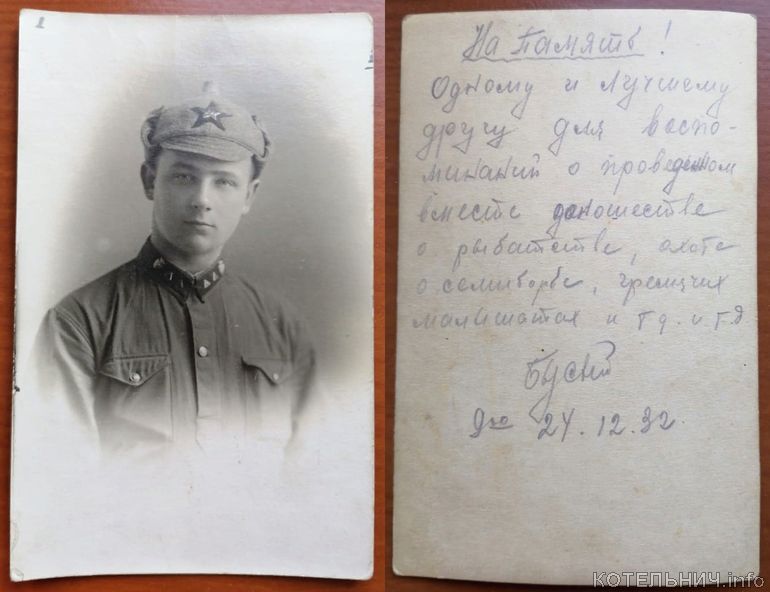 1
На Память!
Одному и лучшему
другу для воспо-
минаний о проведённом
вместе юношестве
о рыбатстве, охоте
о семиборье, гремучих
малышатах и т д. и т.д
24.12.32.
КОТЕЛЬНИЧ.info